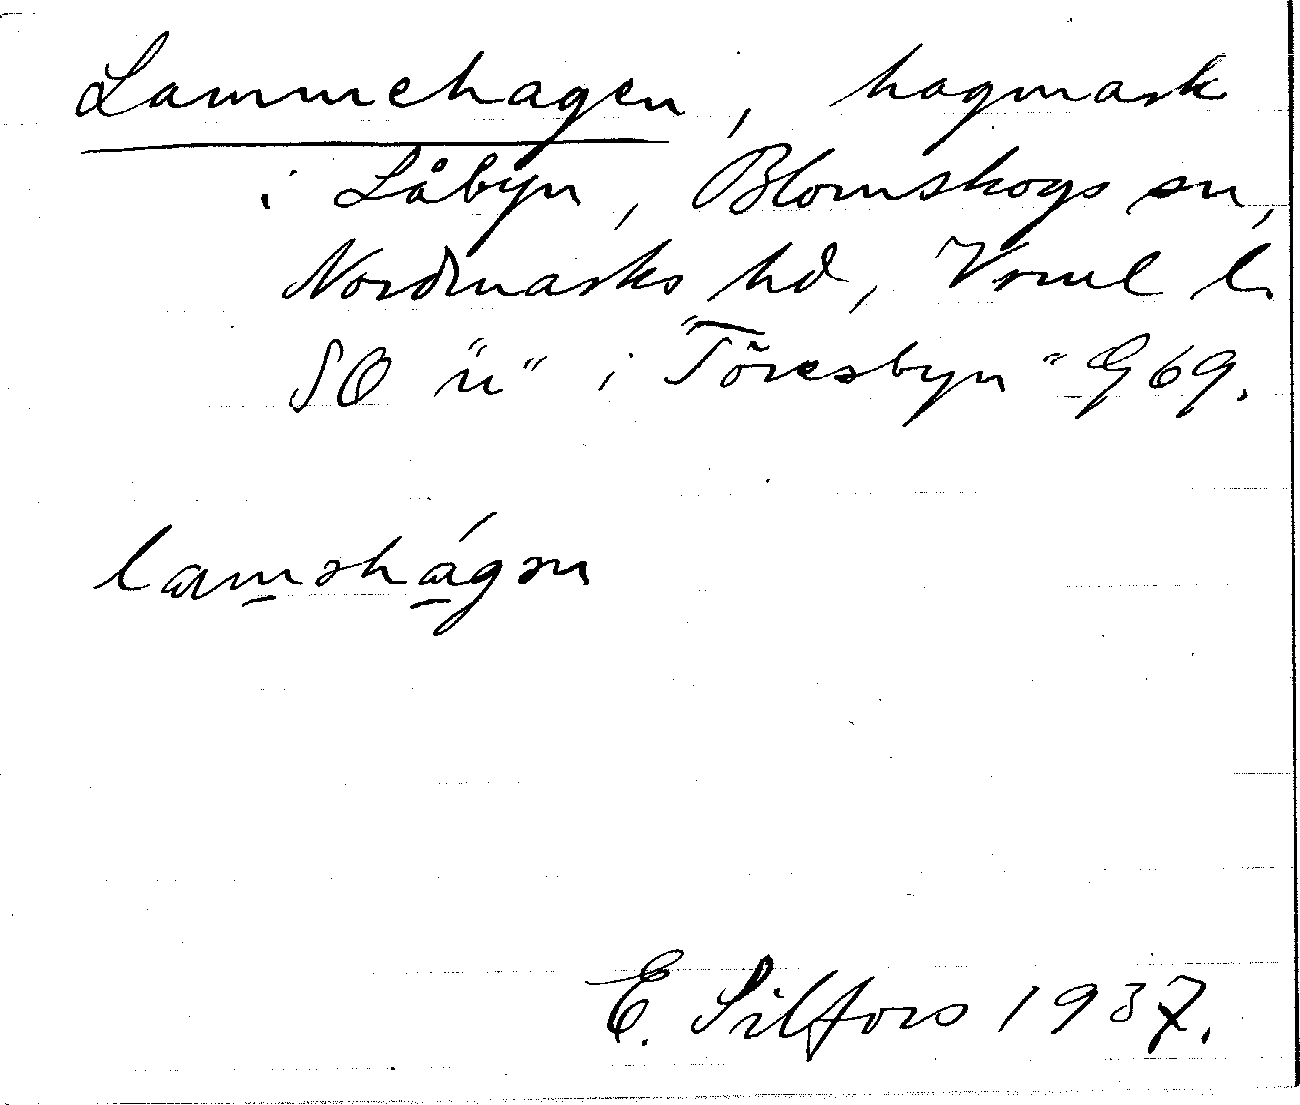 Lammehagen, hagmark
i Låbyn, Blomskogs sn,
Nordmarks hd, Vrml l.
SO "n" i "Töresbyn" G69.
laməhágən
E. Silfors 1937.